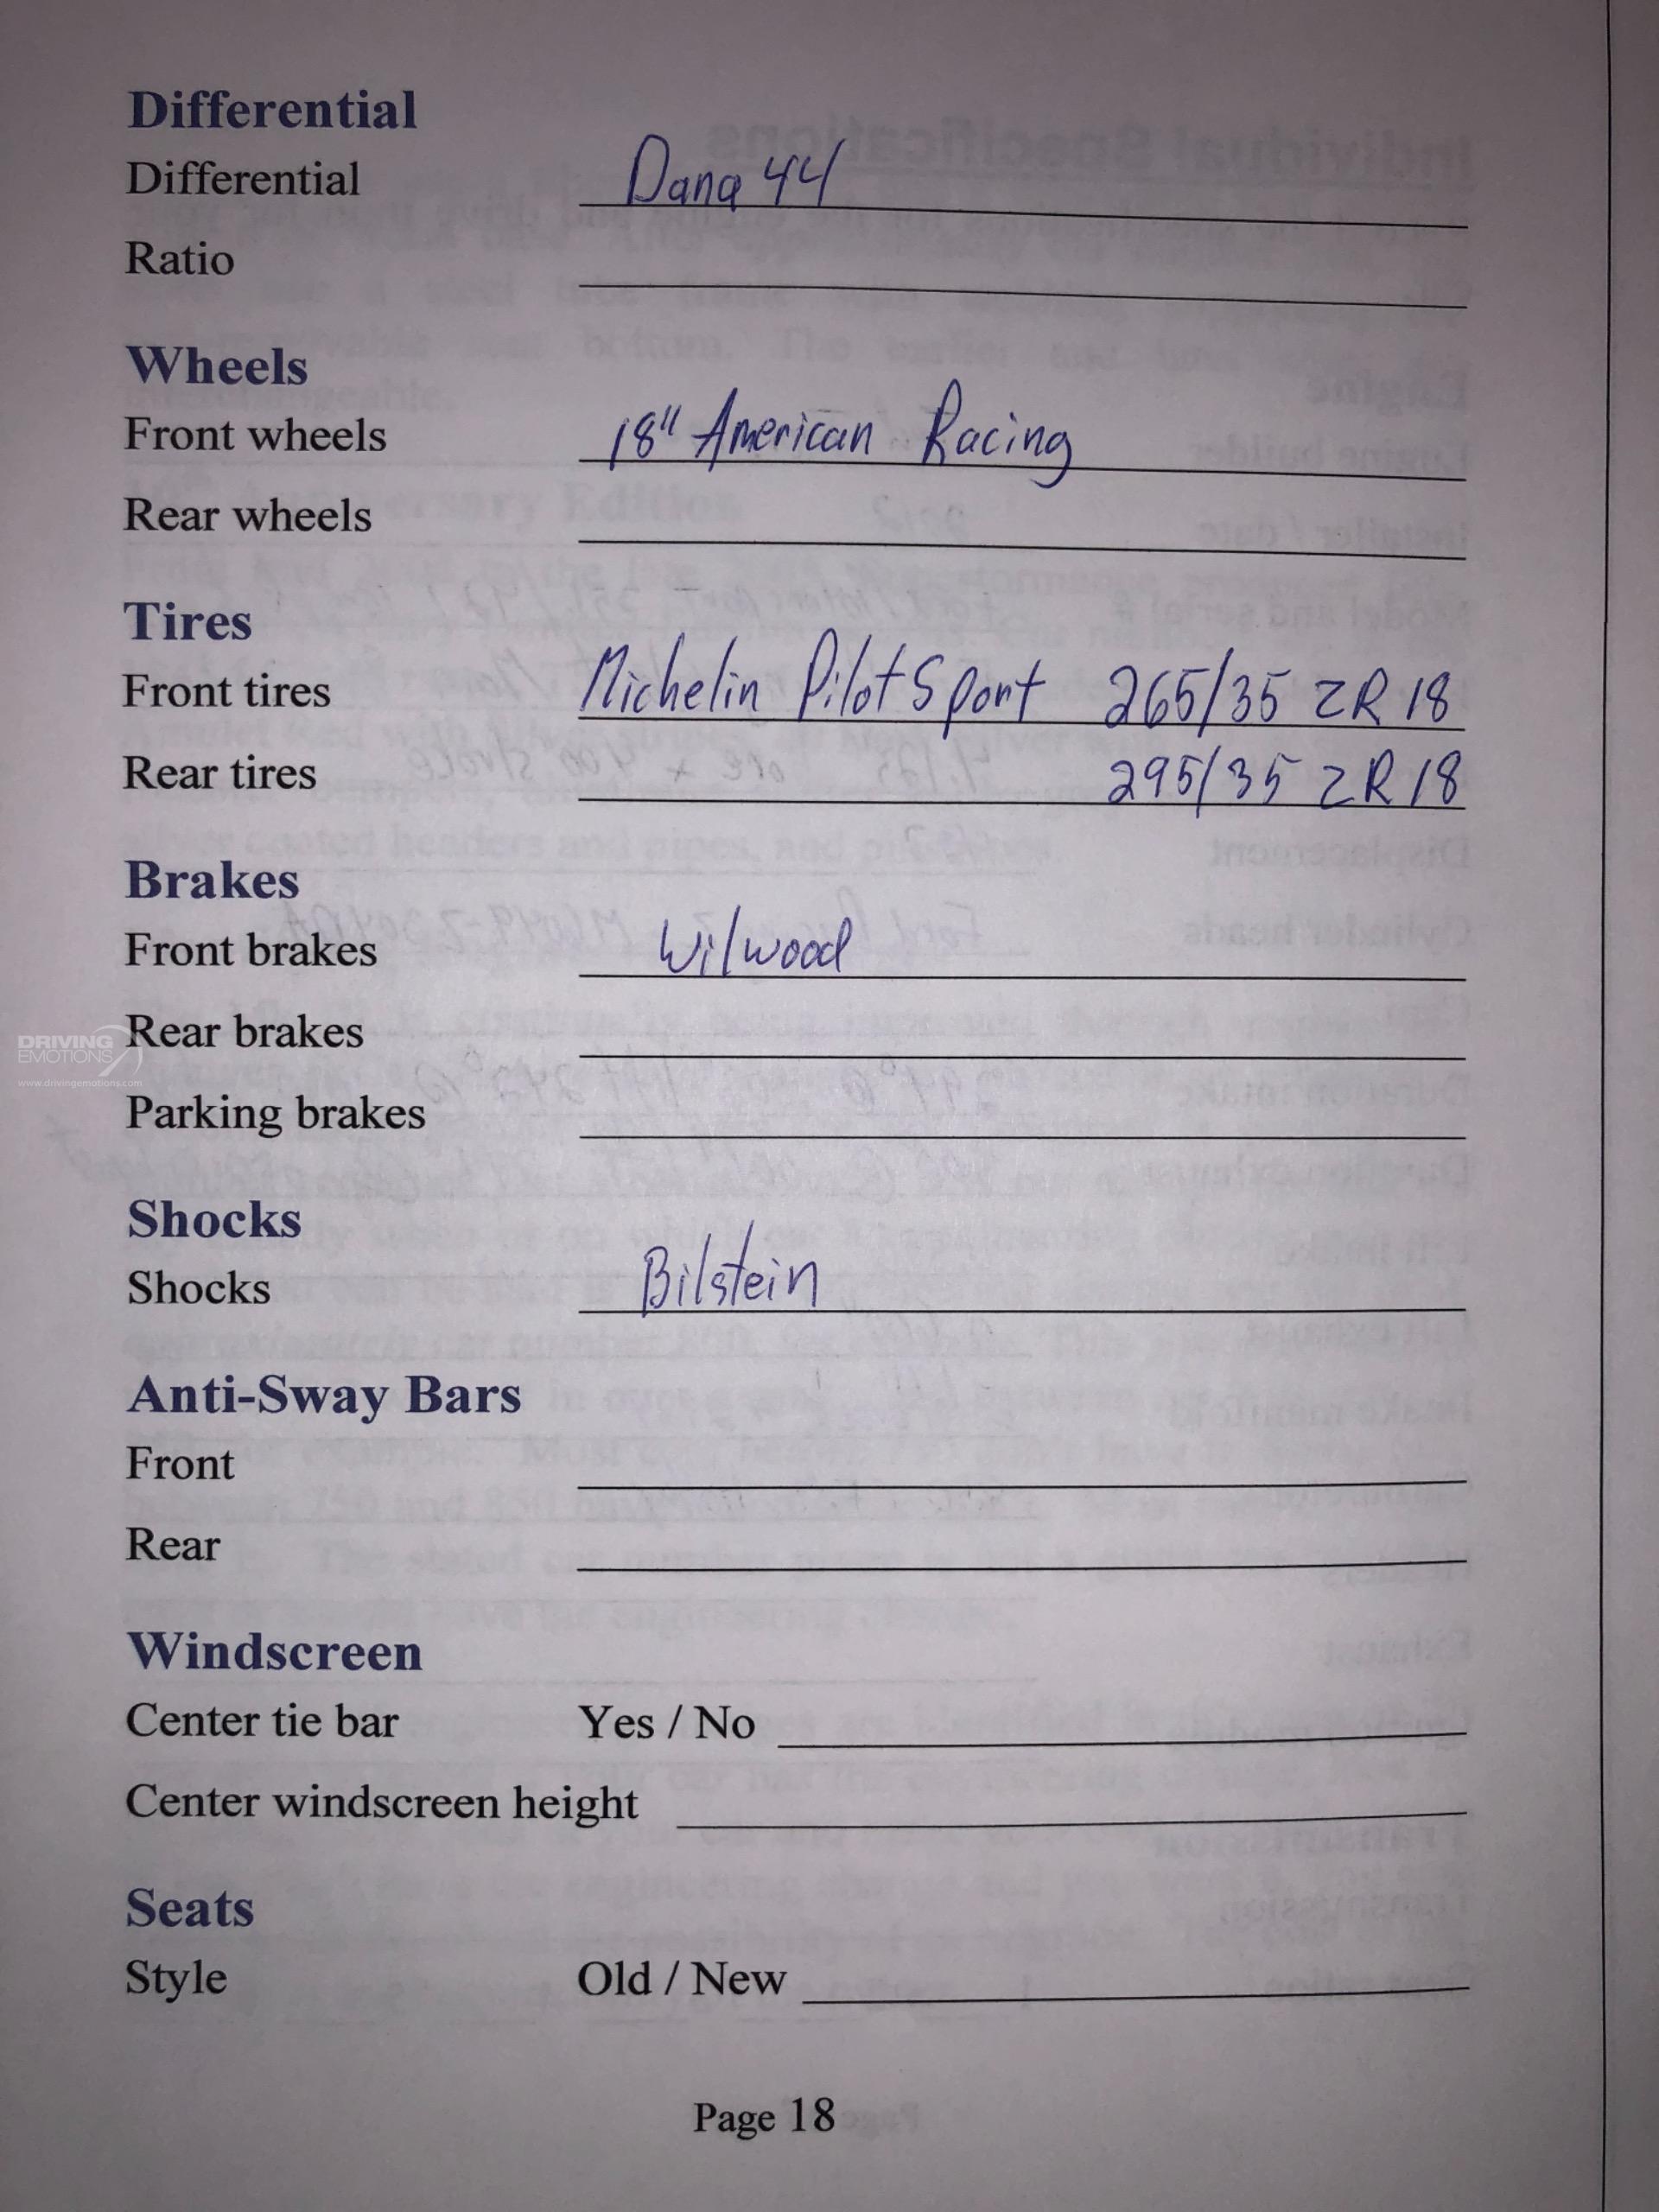 Differential
Differential Dana 44
Ratio
Wheels
Front wheels 18" American Racing
Rear wheels
Tires
Front tires Michelin Pilot Sport 265/35 ZR 18
Rear tires 295/35 ZR 18
Brakes
Front brakes Wilwood
DRIVING EMOTIONS
www.drivingemotions.com
Rear brakes
Parking brakes
Shocks
Shocks Bilstein
Anti-Sway Bars
Front
Rear
Windscreen
Center tie bar Yes / No
Center windscreen height
Seats
Style Old / New
Page 18